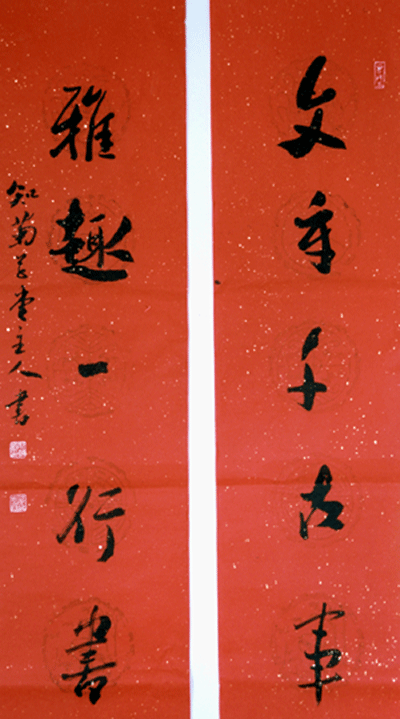 文章千古事
雅趣一行書
知菊草堂主人書